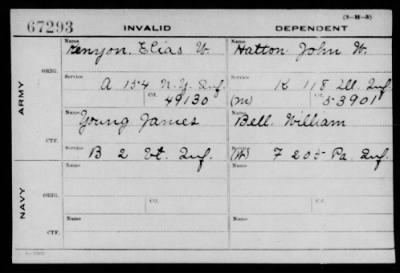 67293 INVALID DEPENDENT (3-M-3)
ARMY
ORIG.
Name Kenyon, Elias W. Name Hatton John W.
Service A 154 N.Y. Inf. Service K 118 Ill. Inf.
Ctf. 49130 (M) Ctf. 53901
CTF.
Name Young James Name Bell William
Service B 2 Vt. Inf. Service (W) F 205 Pa. Inf.
NAVY
ORIG.
Name Name
Ctf. Ctf.
CTF.
Name Name